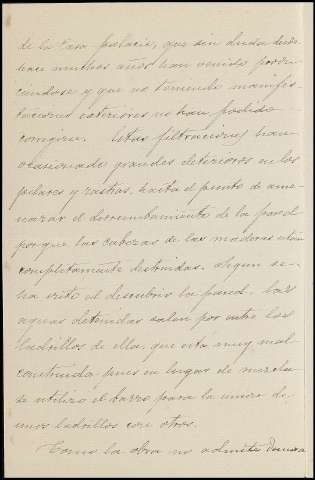 de la Casa-palacio, que sin duda desde
hace muchos años han venido produ-
ciendose y que no teniendo manifes-
taciones exteriores no han podido
corregirse. Estas filtraciones han
ocasionado grandes deterioros en los
pilares y rastras, hasta el punto de ame-
nazar el derrumbamiento de la pared
porque las cabezas de las maderas estan
completamente destruidas. Segun se
ha visto al descubrir la pared. Las
aguas detenidas salen por entre los
ladrillos de ella, que esta muy mal
construida, pues en lugar de mezcla
se utilizó el barro para la union de
unos ladrillos con otros.
Como la obra no admite demora